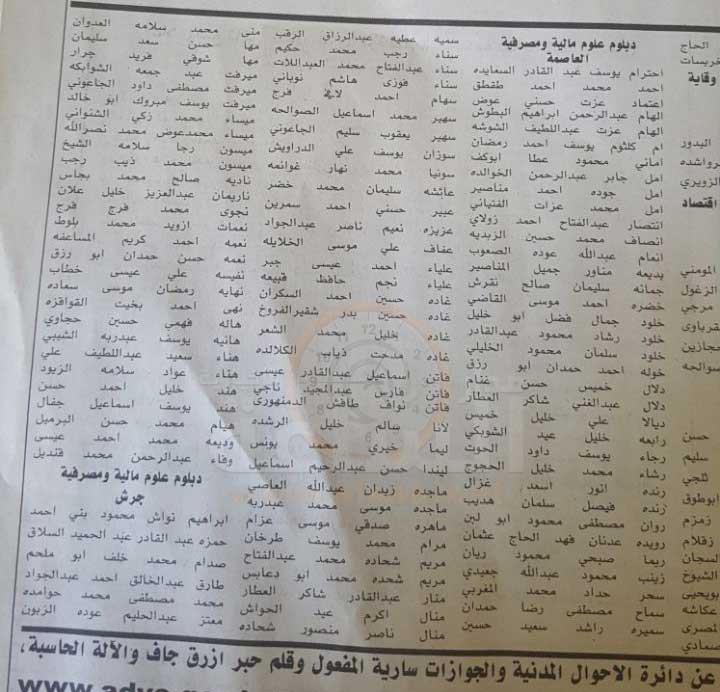 الحاج
خريسات
وقاية
البدور
الرواشده
الزويري
اقتصاد
المومني
الزغول
مرجي
القرباوي
حجازين
سوالحه
حسن
سليم
ثلجي
ابوطوق
زمزم
زقلام
السجان
الشيوخ
بويحيى
عكاشه
المصري
صمادي
دبلوم علوم مالية ومصرفية
العاصمة
احترام يوسف عبد القادر السعايده
احمد محمد احمد طقطق
اعتماد عزت حسني عوض
الهام عبدالرحمن ابراهيم البطوش
الهام عزت عبداللطيف الشوشه
ام كلثوم يوسف احمد رمضان
اماني محمود عطا ابوكف
امل جابر عبدالرحمن الخوالده
امل جوده احمد مناصير
امل محمد عزات الفتياني
انتصار عبدالفتاح احمد زولاي
انصاف محمد حسين الزبديه
انعام عبدالله عوده الصعوب
بديعه مناور جميل المناصير
جمانه سليمان صالح نقرش
خضره احمد موسى القاضي
خلود جمال فضل ابو خليل
خلود رشاد محمود عبدالقادر
خلود سلمان محمود الخليلي
خوله احمد حمدان ابو رزق
دلال خميس حسن غنام
دلال عبدالغني شاكر العطار
ديالا علي خليل خميس
رابعه خليل عيد الشوبكي
رجاء يوسف داود الحوت
رشاء محمد خليل الحجوج
رنده انور اسعد غزال
رنده فيصل سلمان هديب
روان مصطفى محمود ابو لبن
رويده عدنان فهد الحاج عثمان
ريما صبحي محمود ريان
زينب محمود عبدالله جعيدي
سحر حداد محمد المغربي
سماح مصطفى رضا حمدان
سميره راشد سعيد حسين
سميه عطيه عبدالرزاق الرقب
سناء رجب محمد حكيم
سناء عبدالفتاح محمد العبداللات
سناء فوزي هاشم نوباني
سهام احمد لافي فرج
سهير محمد اسماعيل الصوالحه
سهير يعقوب سليم الجاعوني
سوزان يوسف علي الدراويش
سونيا محمد نهار غوانمه
عائشه سليمان محمد خضر
عبير حسني احمد سمرين
عزيزه نعيم ناصر عبدالجواد
عفاف علي موسى الخلايله
علياء احمد عيسى جبر
علياء نجم حافظ قبيعه
غاده حسين احمد السكران
غاده حسين بدر شقيرالفروخ
غاده خليل محمد الشعر
غاده مدحت ذياب الكلالده
فاتن اسماعيل عبدالقادر عيسى
فاتن فارس عبدالمجيد ناجي
فاتن نواف طافش الدمنهوري
لانا سالم خليل الرشده
ليما خيري محمد يونس
ليندا حسن عبدالرحيم اسماعيل
ماجده زيدان عبدالله العاصي
ماجده موسى محمد عبدربه
ماهره صدقي موسى عزام
مرام محمد يوسف طرخان
مريم شحاده محمد عبدالفتاح
مريم شحده محمد ابو دعابس
منار عبدالقادر شاكر العطار
منال اكرم عيد الحواش
منال ناصر منصور شحاده
منى محمد سلامه العدوان
مها حسن سعد سليمان
مها شوقي فريد جرار
ميرفت عبد جمعه الشوابكه
ميرفت مصطفى داود الجاعوني
ميرفت يوسف مبروك ابو خالد
ميساء محمد زكي الشنواني
ميساء محمدعوض محمد نصرالله
ميسون رجا سلامه الشيخ
ميسون محمد ذيب رجب
ناديه صالح محمد بجاس
ناريمان عبدالعزيز خليل علان
نجوى محمد فرج فرج
نعمات ازويد محمد بلوط
نعمه احمد كريم المساعفه
نعمه حسن حمدان ابو رزق
نفيسه علي عيسى خطاب
نهايه رمضان موسى سماده
نهى احمد بخيت القواقزه
هاله فهمي حسين حجاوي
هانيه يوسف عبدربه الشيبي
هناء سعيد عبداللطيف علي
هناء عواد سلامه الزيود
هند خليل احمد حسن
هند يوسف اسماعيل جفال
هيام محمد حسن البرميل
وديعه محمد احمد عيسى
وفاء عبدالرحمن محمد قنديل
دبلوم علوم مالية ومصرفية
جرش
ابراهيم نواش محمود بني احمد
حمزه عبد القادر عبد الحميد السلاق
صدام محمد خلف ابو ملحم
طارق عبدالخالق احمد عبدالجواد
محمد مصطفى محمد حوامده
معتز عبدالحليم عوده الزبون
عن دائرة الاحوال المدنية والجوازات سارية المفعول وقلم حبر ازرق جاف والآلة الحاسبة،